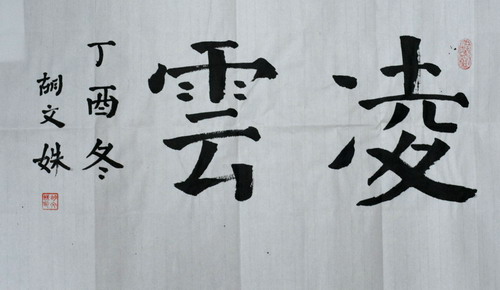 凌雲
丁酉冬
胡文姝